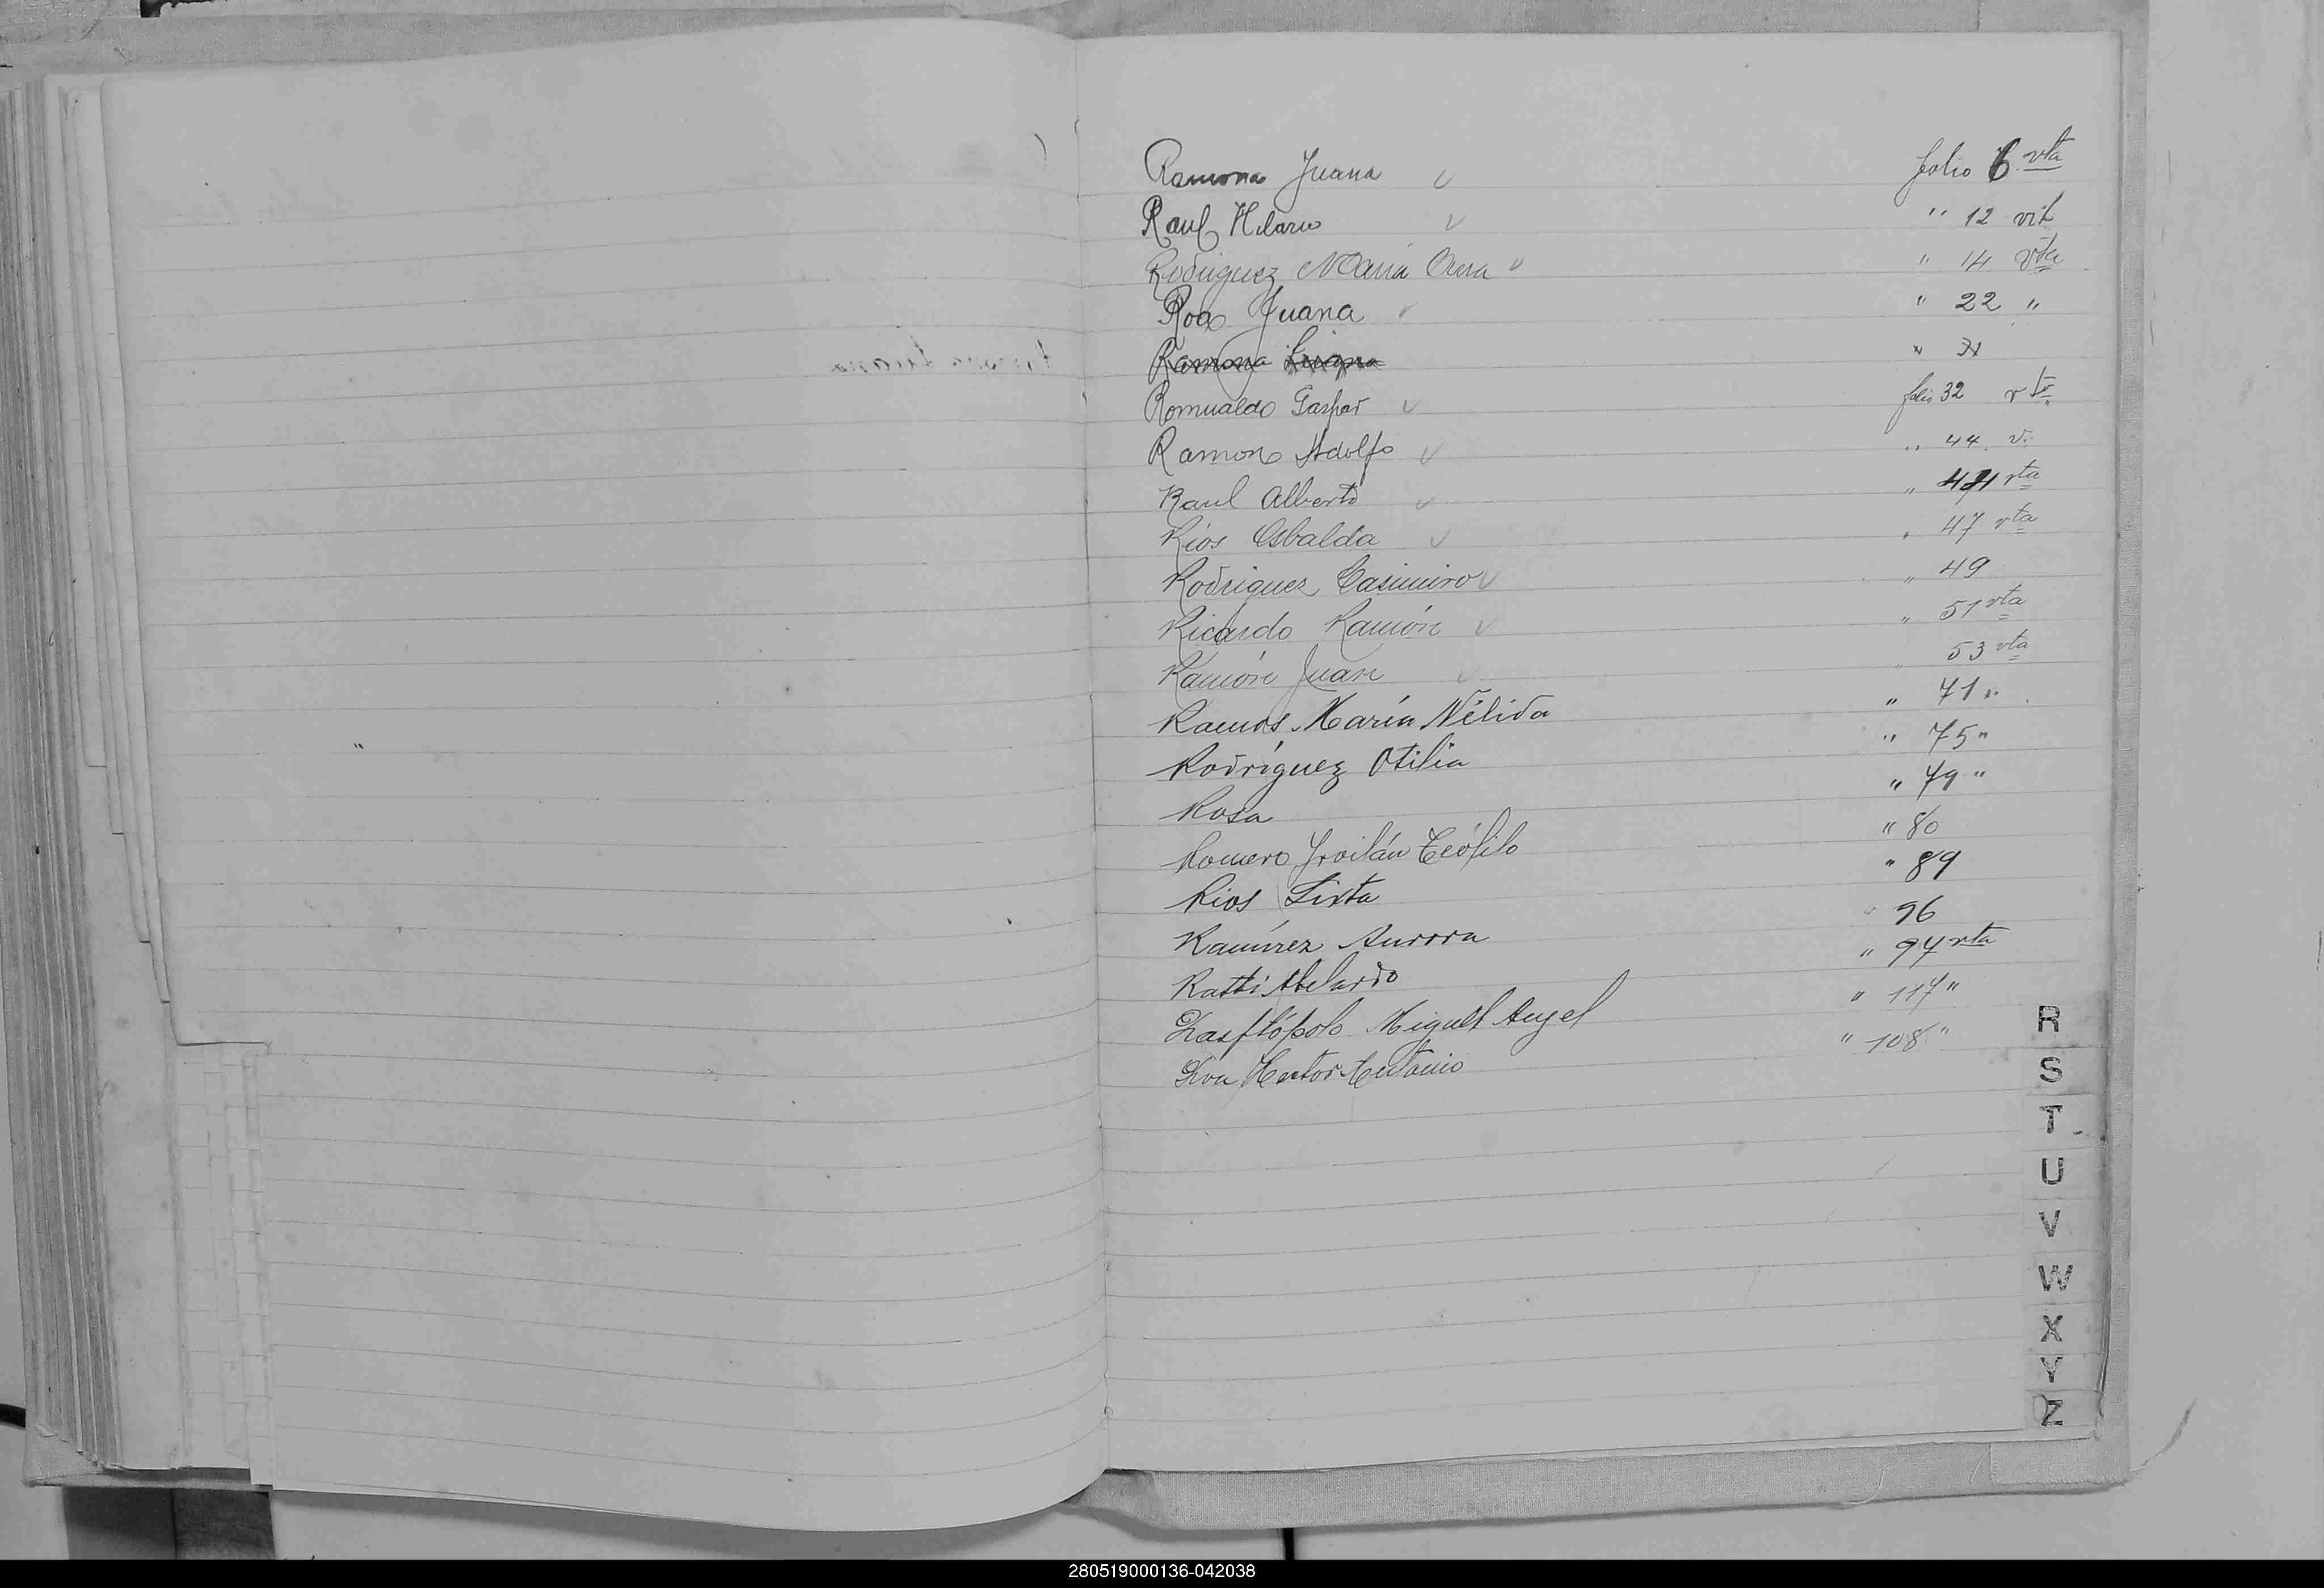 Ramona Juana folio 6 vta
Raul Hilario " 12 vta
Rodriguez Maria " 14 vta
Roa Juana " 22 "
Ramona Luciana " 31
Romualdo Gaspar folio 32 vta
Ramon Adolfo " 44 v.
Raul Alberto " 44 vta
Ríos Osbalda " 47 vta
Rodriguez Casimiro " 49
Ricardo Ramón " 51 vta
Ramón Juan " 53 vta
Ramos María Nélida " 71 "
Rodríguez Otilia " 75 "
Rosa " 79 "
Romero Froilán Teófilo " 80
Rios Sixta " 89
Ramírez Aurora " 96
Ratti Abelardo " 94 vta
Miguel Angel " 117 "
Hector Antonio " 108 "
R
S
T
U
V
W
X
Y
Z
280519000136-042038